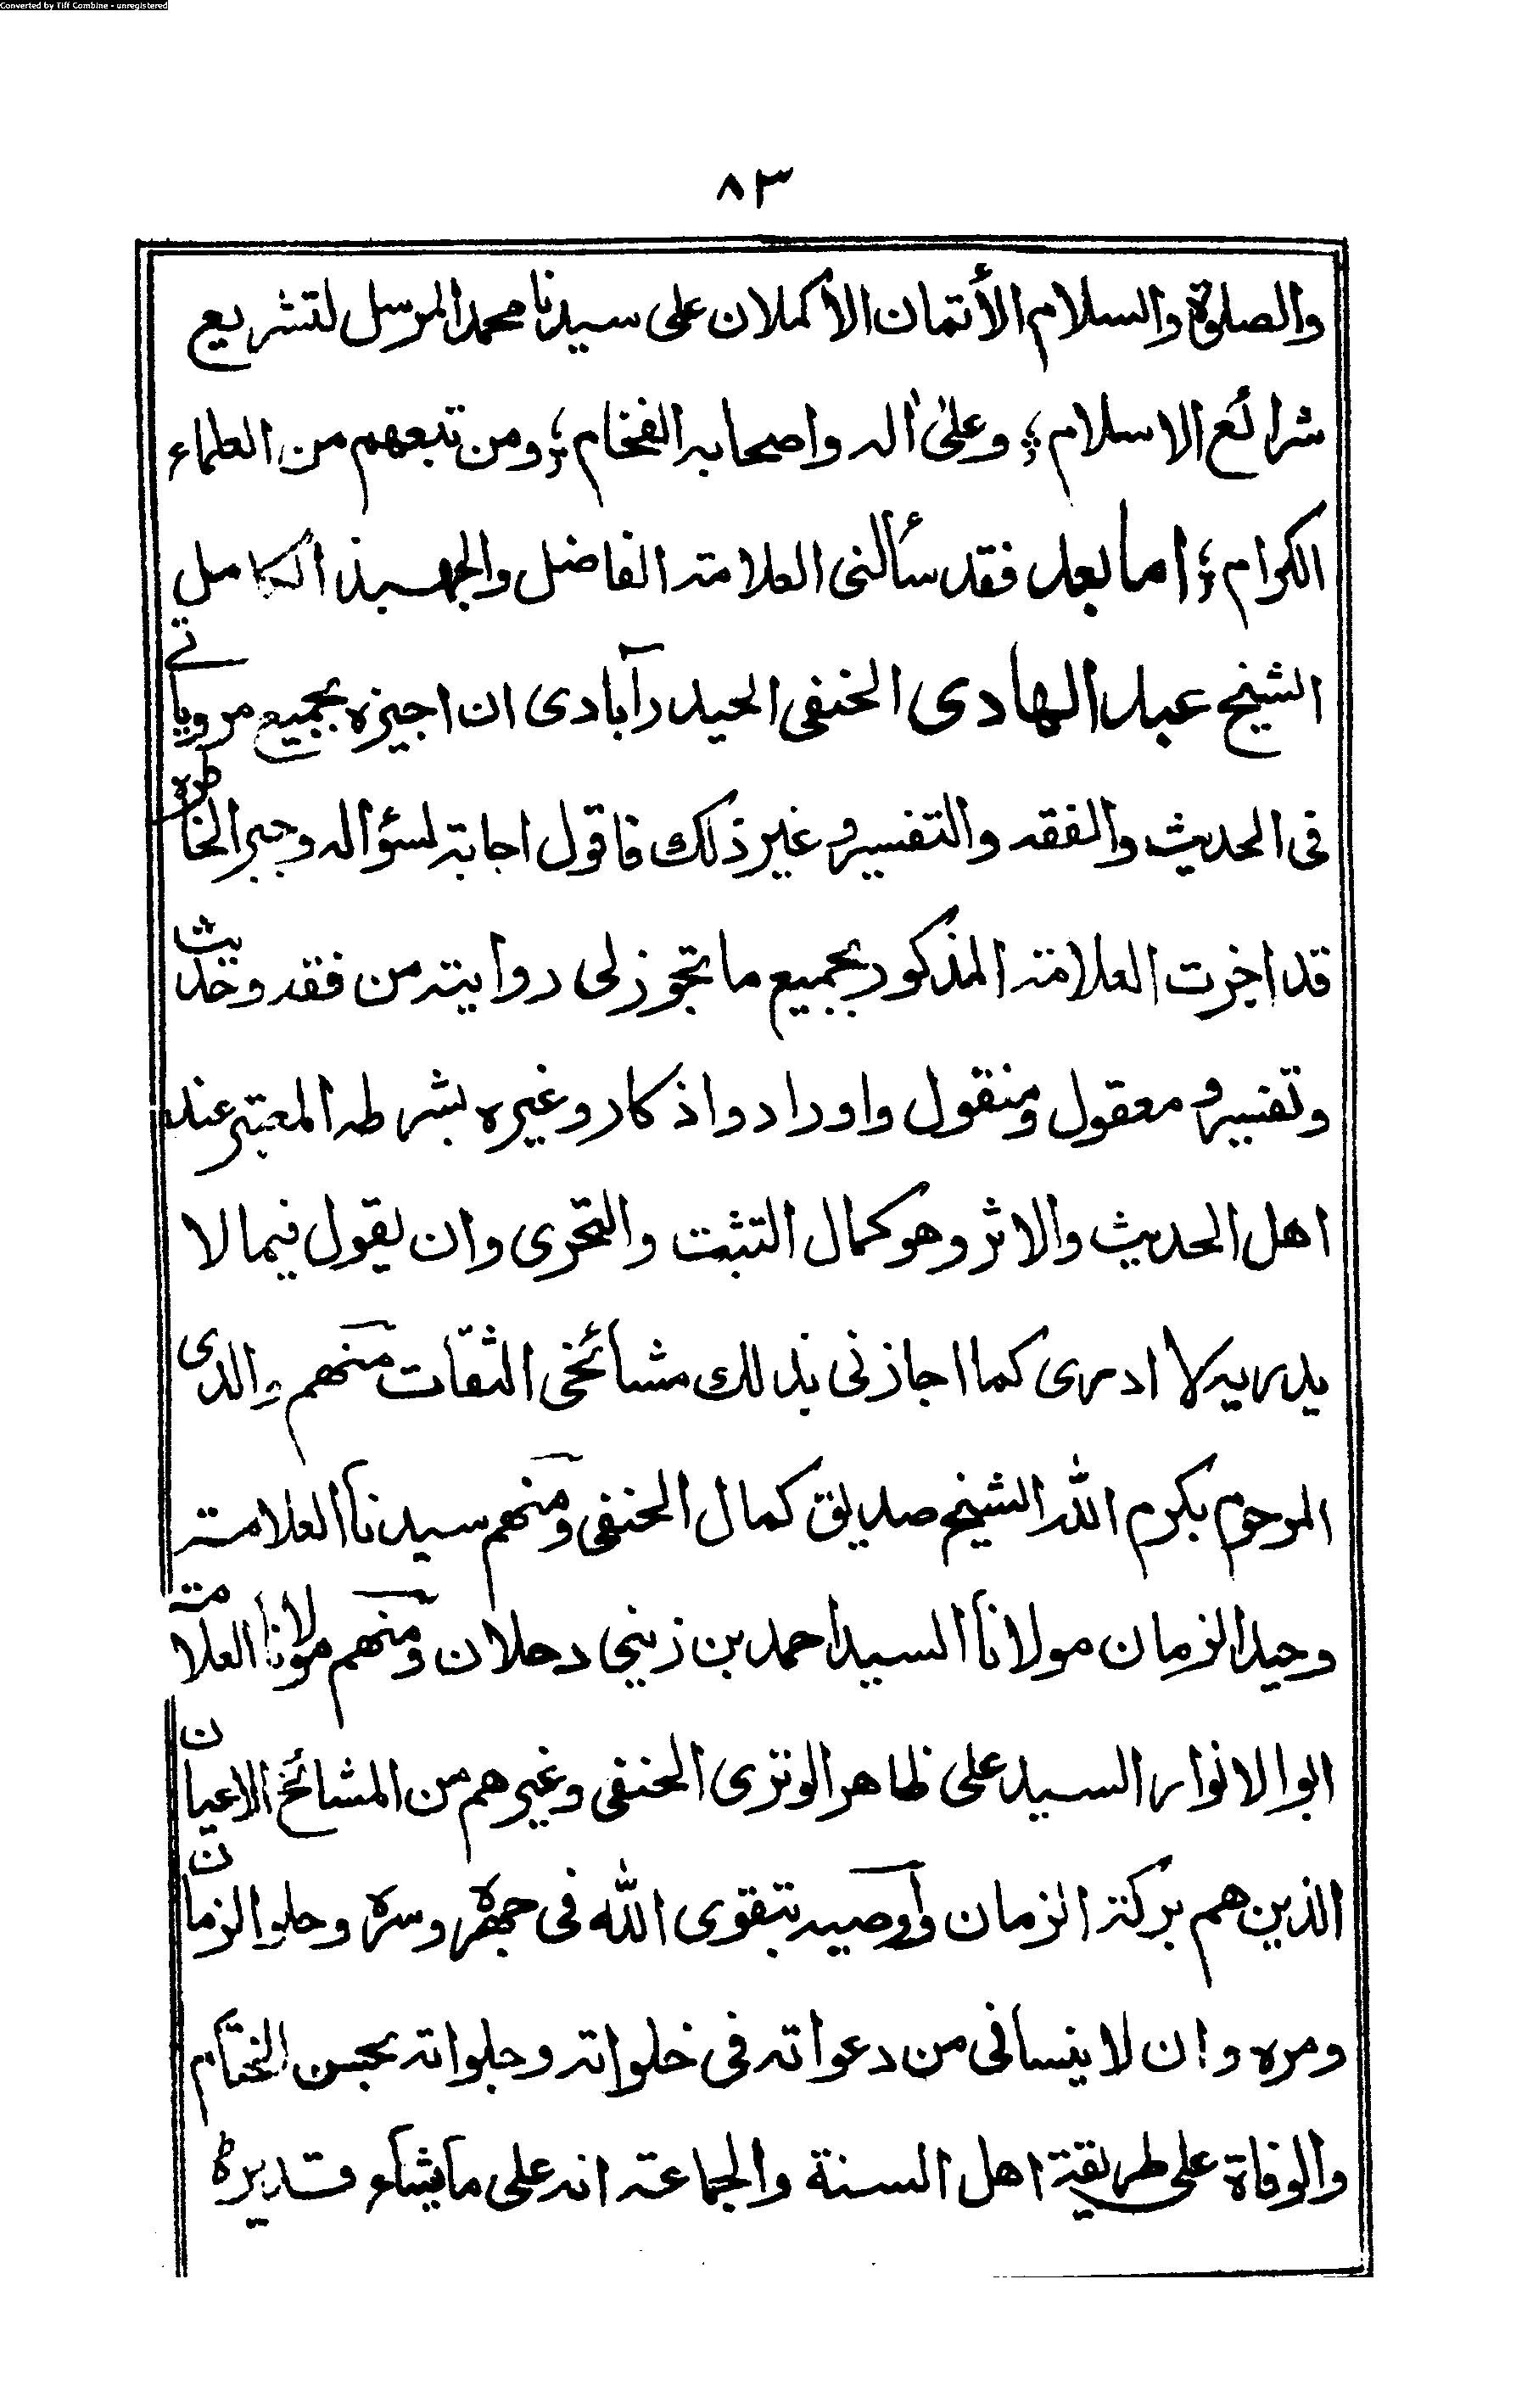 Converted by Tiff Combine - unregistered
٨٣
والصلوة والسلام الأتمان الاكملان على سيدنا محمد المرسل لتشريع
شرائع الاسلام ؛ وعلىٰ اٰله واصحابه الفخام ؛ ومن تبعهم من العلماء
الكرام ؛ اما بعد فقد سألنى العلامة الفاضل والجهبذ الكامل
الشيخ عبد الهادى الحنفى الحيدرآبادى ان اجيزه بجميع مروياتے
فى الحديث والفقه والتفسير وغير ذلك فاقول اجابة لسؤاله وجبر الخاطره
قد اجزت العلامة المذكور بجميع ما تجوز لى روايته من فقه وحديث
وتفسير ومعقول ومنقول واوراد واذكار وغيره بشرطه المعتبر عند
اهل الحديث والاثر وهو كمال التثبت والتحرى وان يقول فيما لا
يدريه لا ادرى كما اجازنى بذلك مشائخى الثقات منهم والدى
المرحوم بكرم الله الشيخ صديق كمال الحنفى ومنهم سيدنا العلامة
وحيد الزمان مولانا السيد احمد بن زينى دحلان ومنهم مولانا العلامة
ابو الانوار السيد على ظاهر الوترى الحنفى وغيرهم من المشائخ الاعيان
الذين هم بركة الزمان وأوصيه بتقوى الله فى جهره وسره وحلو الزمان
ومره وان لا ينسانى من دعواته فى خلواته وجلواته بحسن الختام
والوفاة على طريقة اهل السنة والجماعة انه على ما يشاء قدير ه